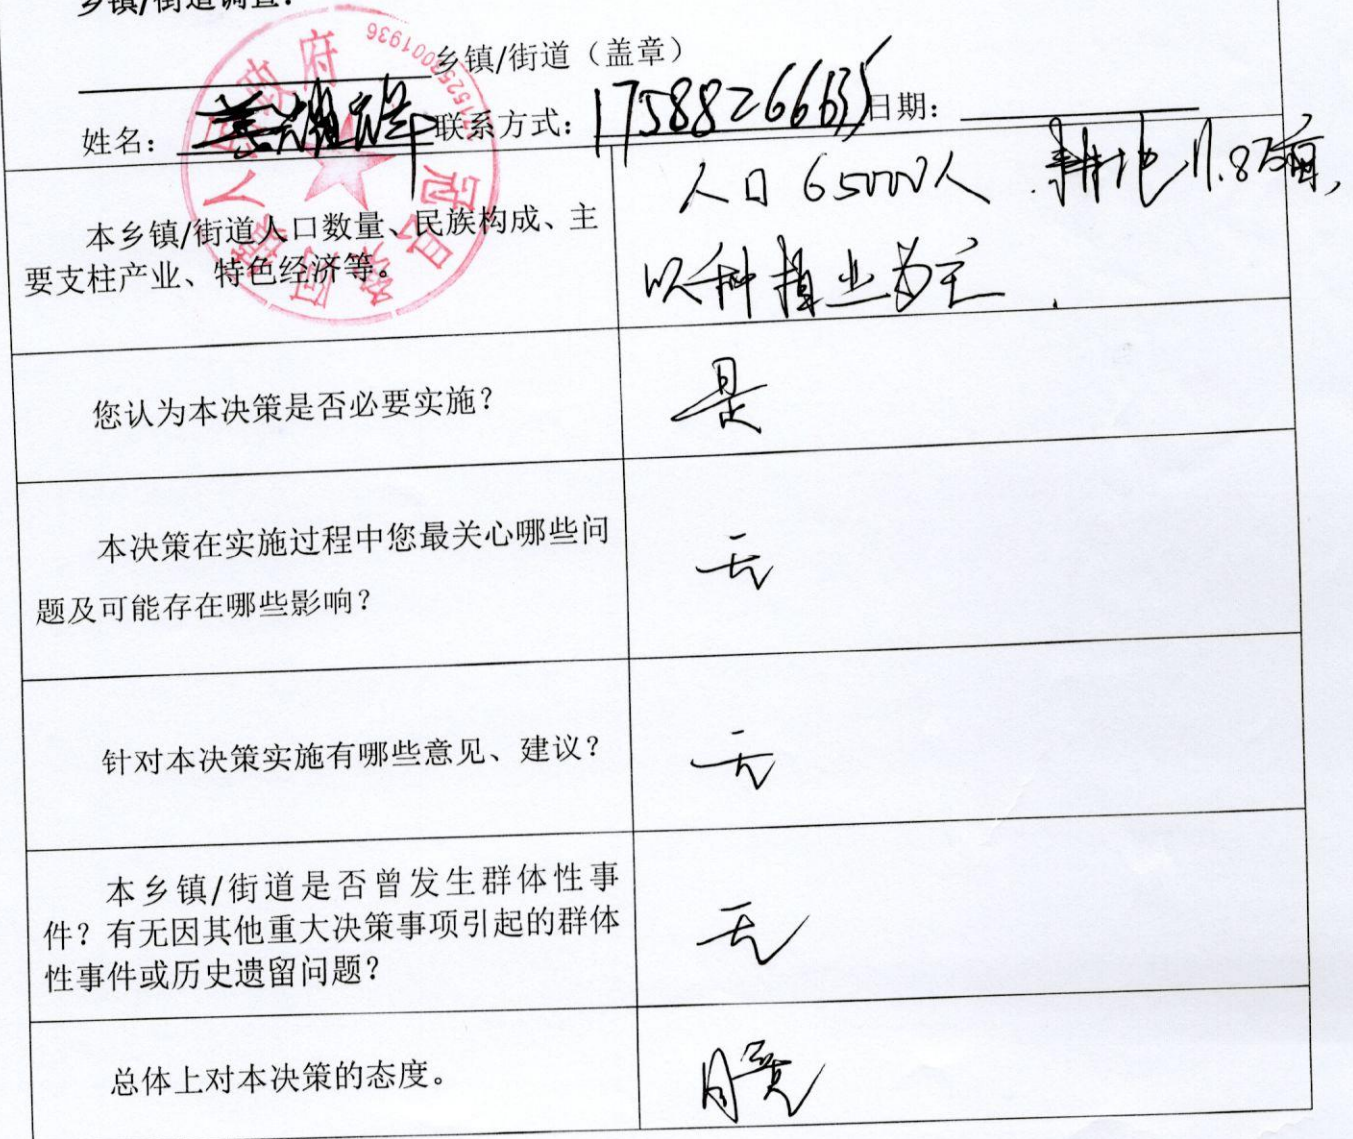 乡镇/街道调查：
乡镇/街道（盖章）
姓名： 联系方式： 日期：
本乡镇/街道人口数量、民族构成、主
要支柱产业、特色经济等。
人口65000人 耕地11.8万亩，
以种植业为主.
您认为本决策是否必要实施？
是
本决策在实施过程中您最关心哪些问
题及可能存在哪些影响？
无
针对本决策实施有哪些意见、建议？
无
本乡镇/街道是否曾发生群体性事
件？有无因其他重大决策事项引起的群体
性事件或历史遗留问题？
无
总体上对本决策的态度。